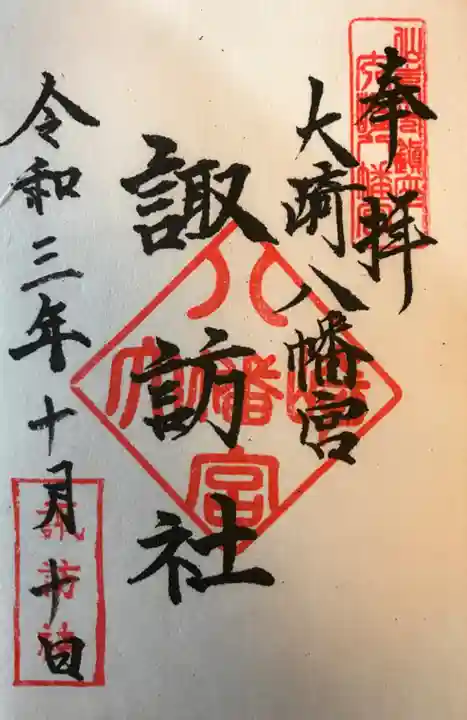 奉拝
大崎八幡宮
諏訪社
令和三年十月十日
八幡宮
諏訪社